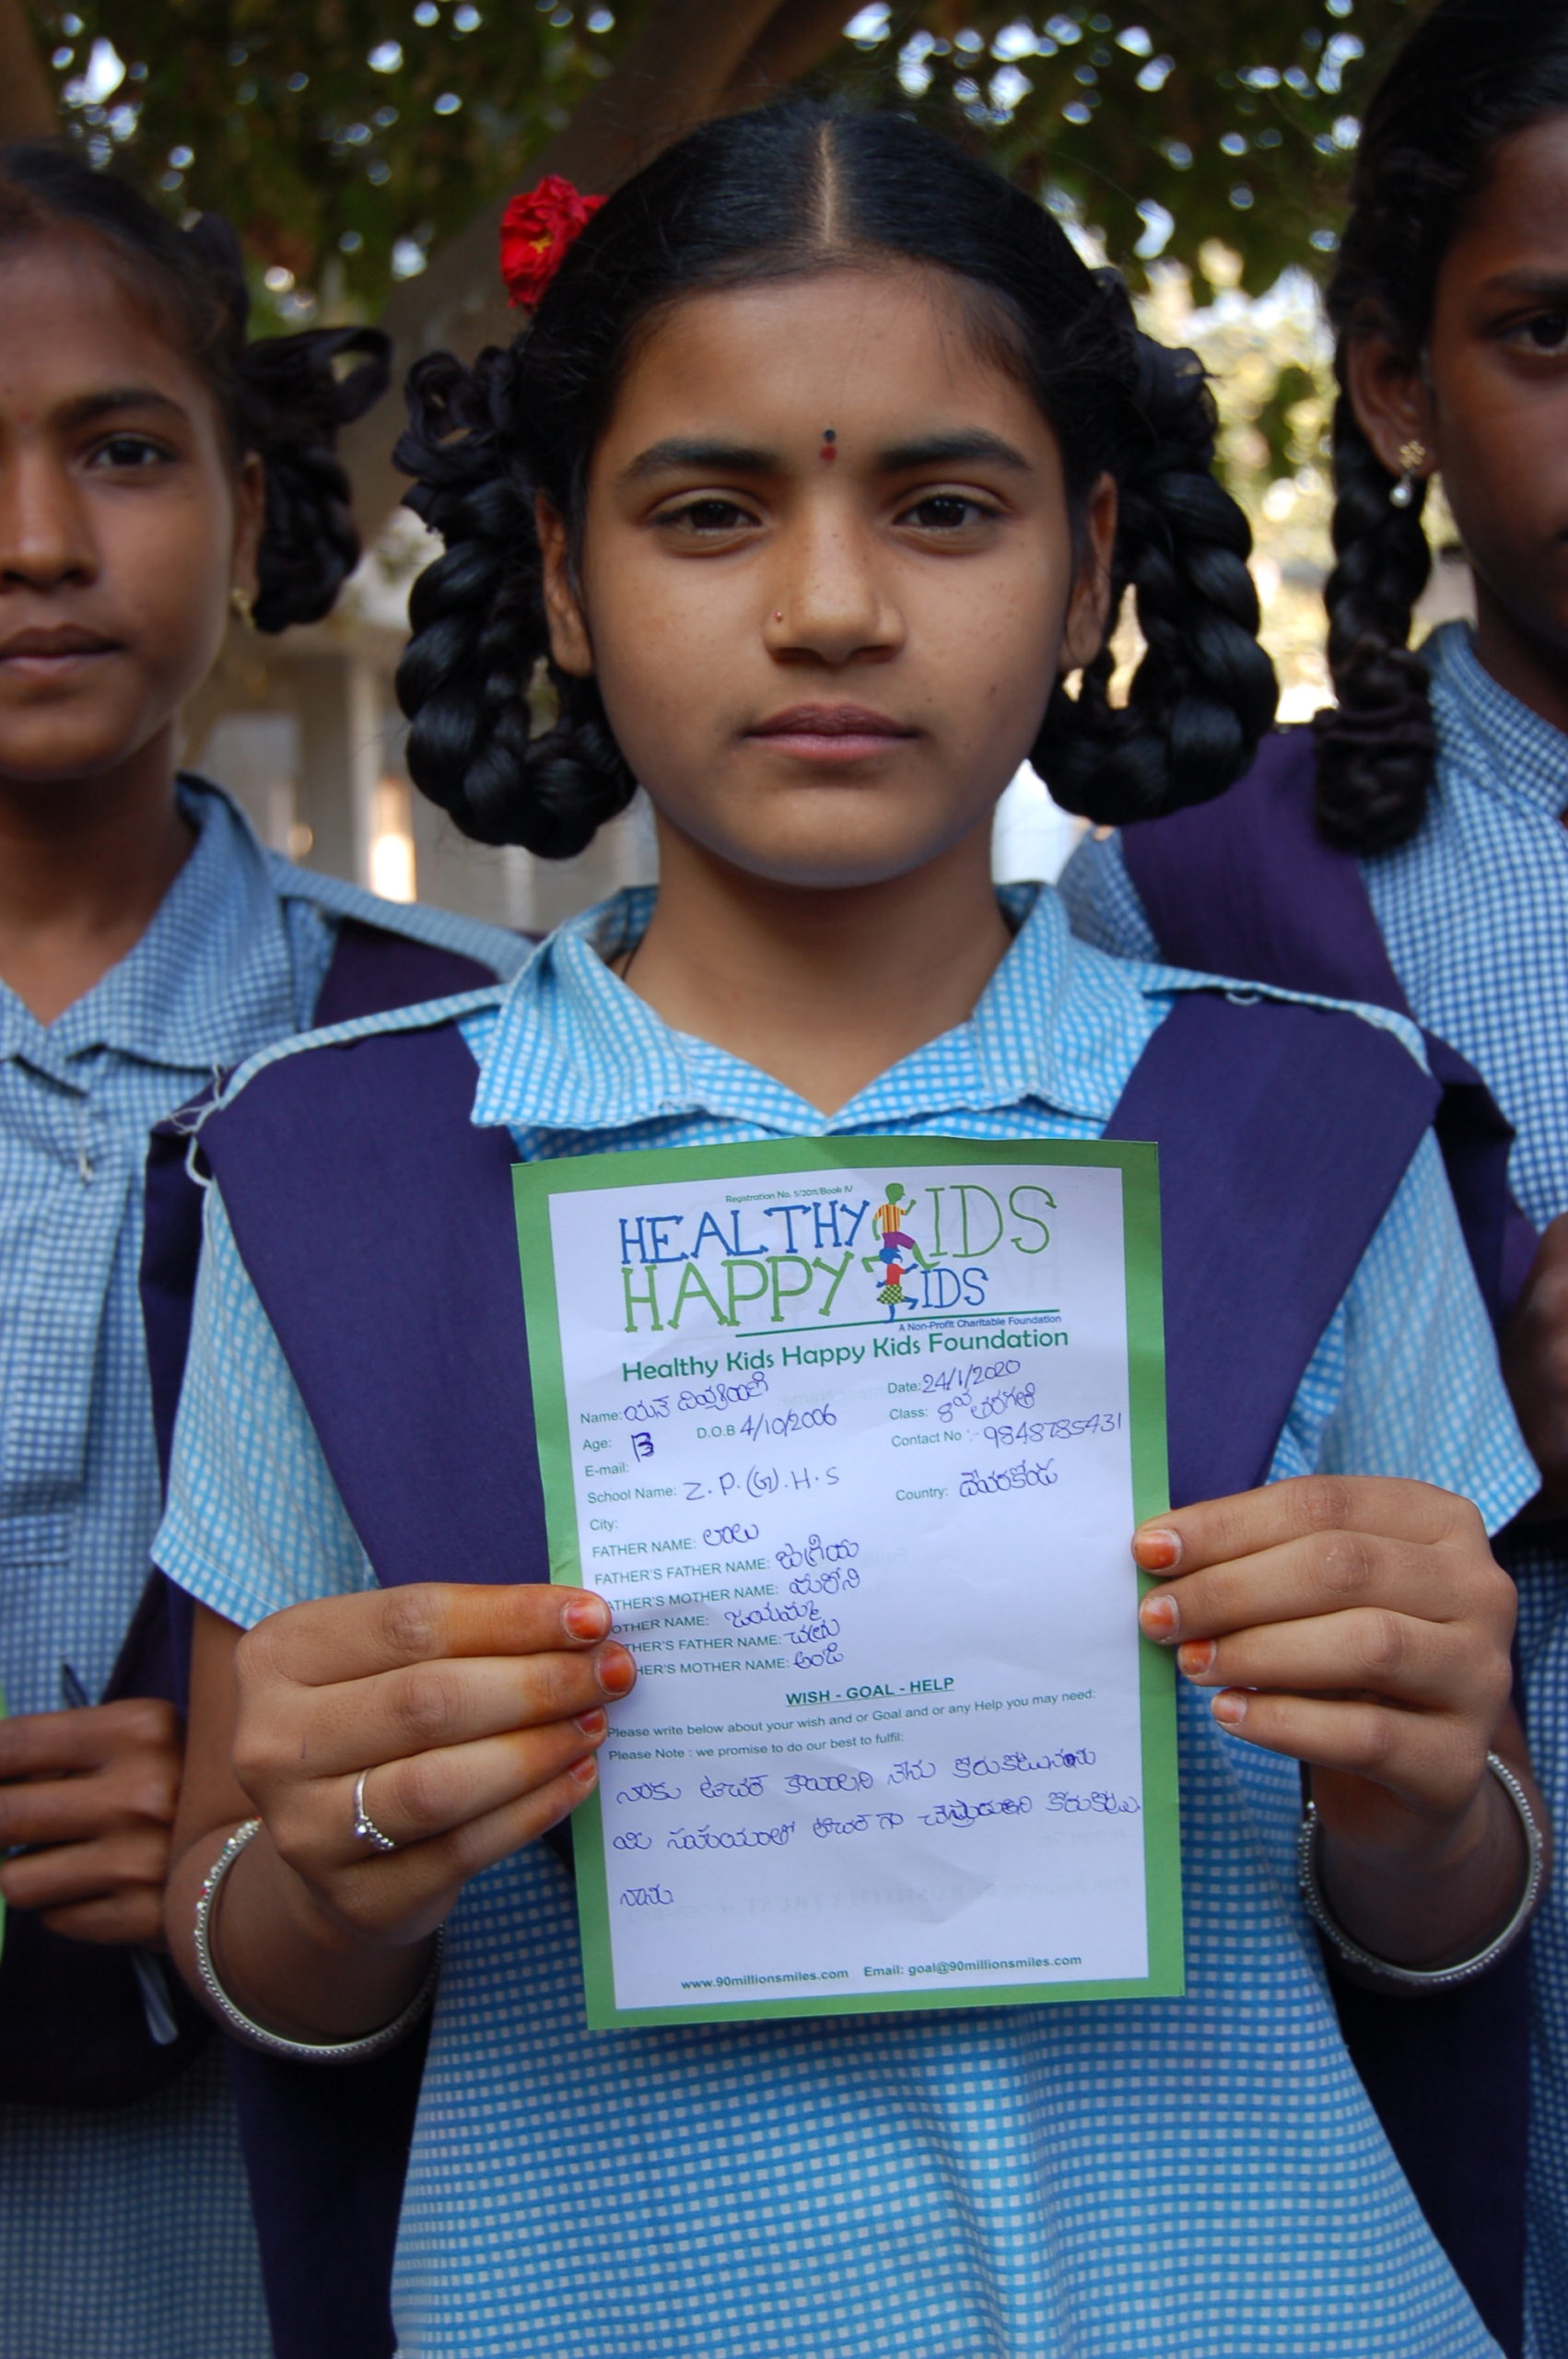 Registration No. 5/2011/Book IV
HEALTHY KIDS
HAPPY KIDS
A Non-Profit Charitable Foundation
Healthy Kids Happy Kids Foundation
Name: Date: 24/1/2020
Age: 13 D.O.B 4/10/2006 Class: 8వ తరగతి
E-mail: Contact No :- 9848785431
School Name: Z.P.(G).H.S Country: దేవరకొండ
City:
FATHER NAME: లాలు
FATHER'S FATHER NAME:
ATHER'S MOTHER NAME:
OTHER NAME: జయమ్మ
THER'S FATHER NAME:
HER'S MOTHER NAME:
WISH - GOAL - HELP
Please write below about your wish and or Goal and or any Help you may need:
Please Note : we promise to do our best to fulfil:
నాకు టీచర్ కావాలని నేను కోరుకుంటున్నాను
సహాయంతో టీచర్ గా
నాను.
www.90millionsmiles.com Email: goal@90millionsmiles.com